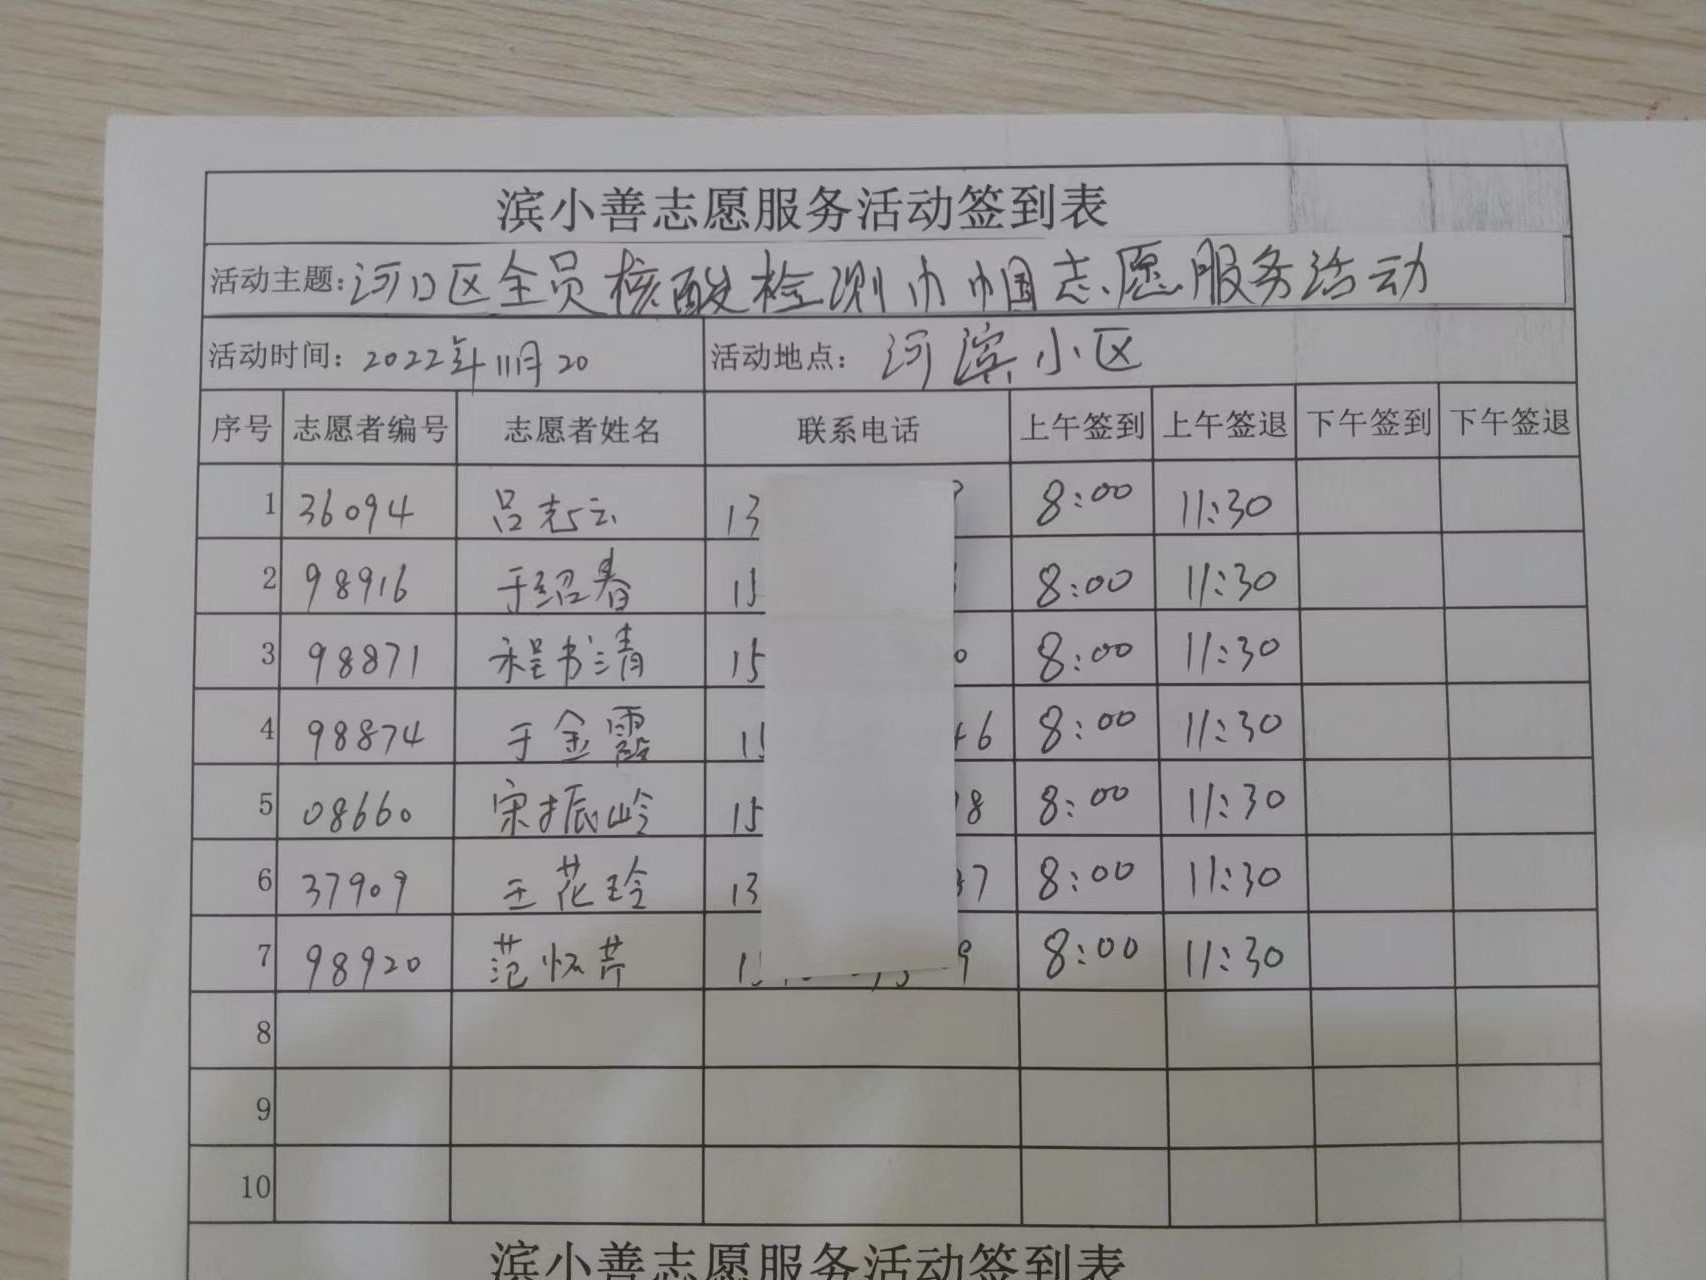 滨小善志愿服务活动签到表
活动主题:河口区全员核酸检测巾帼志愿服务活动
活动时间: 2022年11月20 活动地点: 河滨小区
序号 志愿者编号 志愿者姓名 联系电话 上午签到 上午签退 下午签到 下午签退
1 36094 吕志云 13 8:00 11:30
2 98916 于绍春 15 8:00 11:30
3 98871 程书清 15 0 8:00 11:30
4 98874 于金霞 46 8:00 11:30
5 08660 宋振岭 15 8 8:00 11:30
6 37909 王花玲 13 37 8:00 11:30
7 98920 范怀芹 9 8:00 11:30
8
9
10
滨小善志愿服务活动签到表